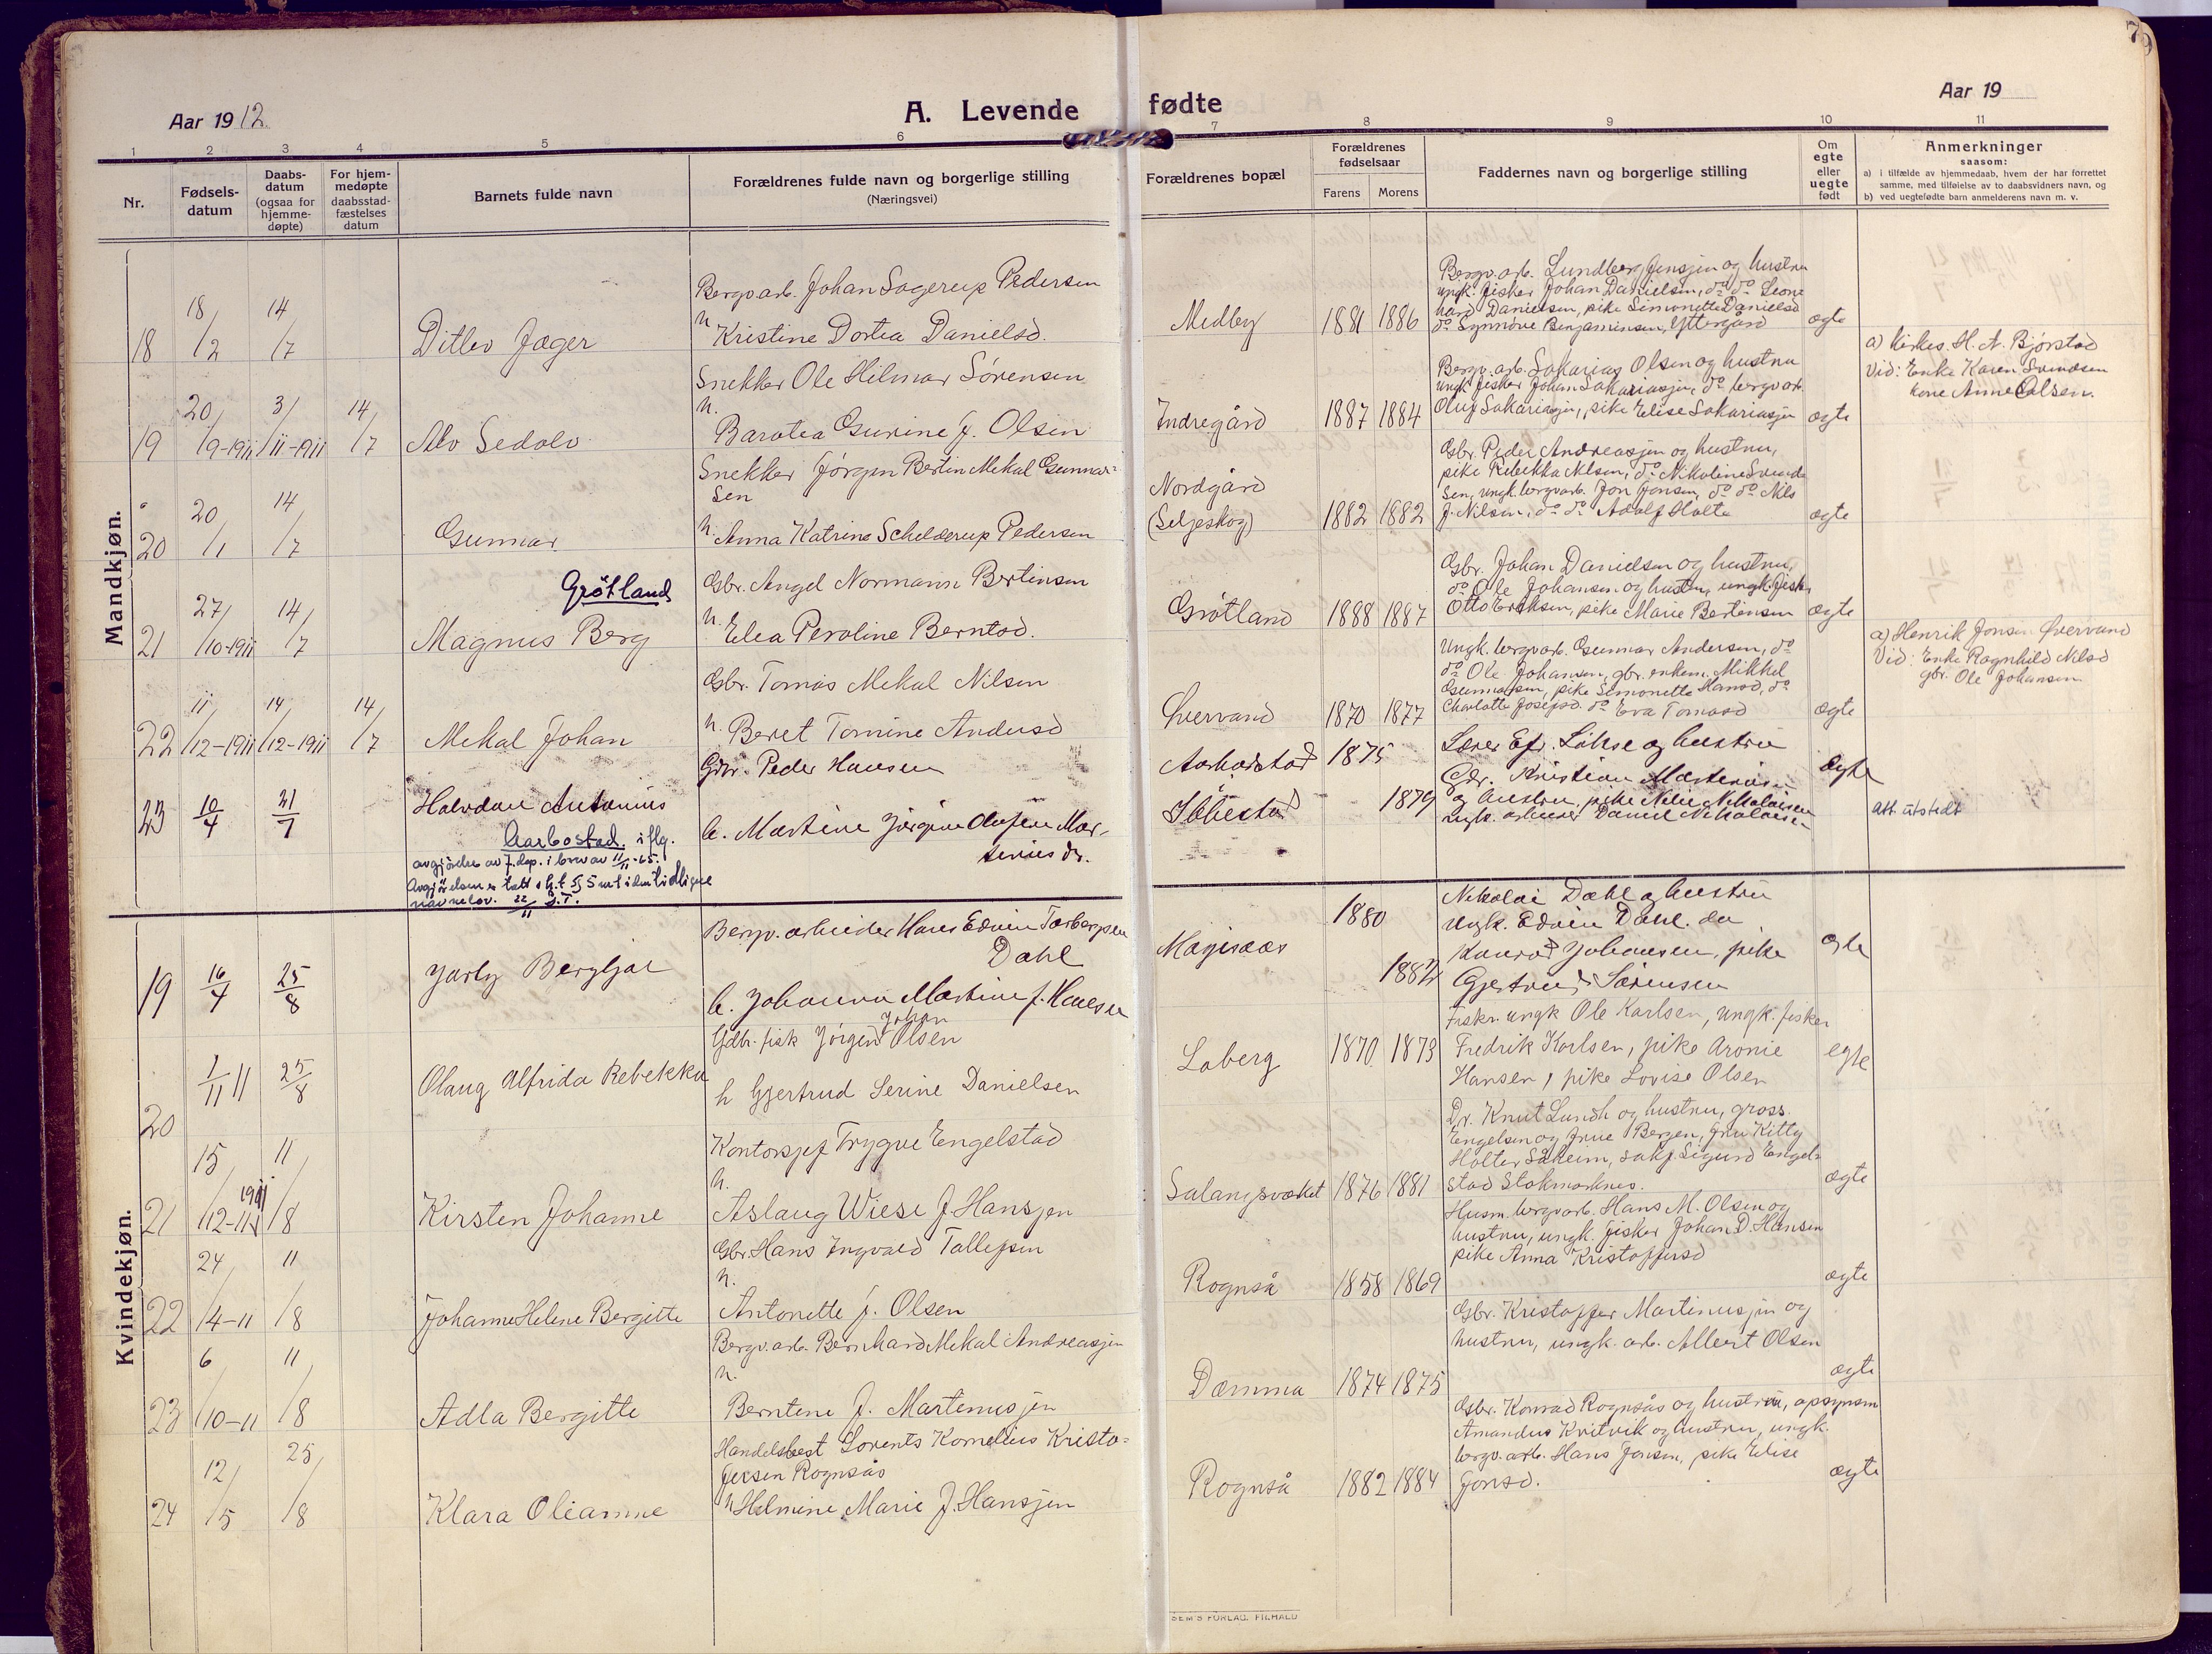 79
Aar 1912.
A. Levende fødte
Aar 19
1 2 3 4 5 6 7 8 9 10 11
Nr.
Fødsels-
datum
Daabs-
datum
(ogsaa for
hjemme-
døpte)
For hjem-
medøpte
daabsstad-
fæstelses
datum
Barnets fulde navn
Forældrenes fulde navn og borgerlige stilling
(Næringsvei)
Forældrenes bopæl
Forældrenes
fødselsaar
Farens Morens
Faddernes navn og borgerlige stilling
Om
egte
eller
uegte
født
Anmerkninger
saasom:
a) i tilfælde av hjemmedaab, hvem der har forrettet
samme, med tilføielse av to daabsvidners navn, og
b) ved uegtefødte barn anmelderens navn m. v.
Mandkjøn.
18 18/2 14/7 Ditlev Jæger
Bergv.arb. Johan Sagerup Pedersen
h. Kristine Dortea Danielsd.
Medby 1881 1886
Bergv.arb. Lundberg Jensen og hustru
ungk. fisker Johan Danielsen, do do Leon-
hard Danielsen, pike Simonette Danielsd
do Synnöve Benjaminsen, Yttergård
ægte
19 20/9-1911 3/11-1911 14/7 Alv Sedolv
Snekker Ole Hilmar Sörensen
h.
Barotea Gurine f. Olsen
Indregård 1887 1884
Bergv.arb. Sakarias Olsen og hustru
ungk. fisker Johan Sakariassen, do bergv.arb.
Oluf Sakariassen, pike Elise Sakariassen
ægte
a) Kirkes. H. A. Bjørstad
Vid: Enke Karen Svendsen
kone Anne Olsen.
20 20/1 14/7 Gunnar
Snekker Jörgen Bertin Mekal Gunnar-
sen
h. Anna Katrine Schelderup Pedersen
Nordgård
(Seljeskog) 1882 1882
Gbr. Peder Andreassen og hustru,
pike Rebekka Nilsen, do Nikoline Svend-
sen, ungk. bergv.arb. Jon Jonsen, do do Nils
J. Nilsen, do do Adolf Holte
ægte
21 27/10-1911 14/7 Magnus Berg
Grötland
Gbr. Angel Normann Bertinsen
h. Elea Peroline Berntsd.
Grötland 1888 1887
Gbr. Johan Danielsen og hustru,
do Ole Johansen og hustru, ungk. fisker
Otto Eriksen, pike Marie Bertinsen
ægte
22 11/12-1911 14/12-1911 14/7 Mekal Johan
Gbr. Tomas Mekal Nilsen
h. Beret Tomine Andersd
Hvervand 1870 1877
Ungk. bergv.arb. Gunnar Andersen, do
do Ole Johansen, gbr. enkem. Mikkel
Gunnarsen, pike Simonette Hansd, do
Charlotte Josefsd. do Eva Tomasd
ægte
a) Henrik Jonsen Hvervand
Vid: Enke Ragnhild Nilsd
gbr. Ole Johansen
23 10/4 21/7 Halvdan Antonius
Aarbostad. iflg.
avgjørelse av J.dep. i brev av 11/11-65.
Avgjörelsen er tatt i h.t. § 5 i den tidligere
navnelov. 22/11 J.T.
Gbr. Peder Hansen
h. Martine Jörgine Olufine Mar-
tinius dr.
Aarbostad 1875
Ibbestad 1879
Lærer Ef. Løkse og hustru
Gbr. Kristian Martinussen
og hustru, pike Nelie Nikolaisen
ungk. arbeider Daniel Nikolaisen
Egte
att. utstedt
Kvindekjøn.
19 16/4 25/8 Jarly Bergljot
Bergv. arbeider Hans Edvin Torbergsen
Dahl
h. Johanna Martine f. Hansen
1880
1882
Nikolai Dahl og hustru
Ungk. Edvin Dahl. do
Konrad Johansen, pike
Gjertrud Sørensen
egte
20 1/11 11 25/8 Olaug Alfrida Rebekka
Gdbr. fisk Jörgen Johan Olsen
h Gjertrud Serine Danielsen
Laberg 1870 1873
Fiskr. ungk Ole Karlsen, ungk. fisker
Fredrik Karlsen, pike Aronie
Hansen, pike Lovise Olsen
egte
21 15/12-11 1911 11/8 Kirsten Johanne
Kontorsjef Trygve Engelstad
h.
Aslaug Wiese f. Hansen
Salangsverket 1876 1881
Dr. Knut Lundh og hustru, gross.
Engelsen og frue Bergen, fru Kitty
Holter Såheim, sakf. Sigurd Engel-
stad Stokmarknes.
ægte
22 24/4-11 11/8 Johanne Helene Bergitte
Gbr. Hans Ingvald Tollefsen
h.
Antonette f. Olsen
Rognså 1858 1869
Husm. bergv.arb. Hans M. Olsen og
hustru, ungk. fisker Johan D. Hansen
pike Anna Kristoffersd
ægte
23 6/10-11 11/8 Adla Bergitte
Bergv.arb. Bernhard Mekal Andreassen
h.
Berntine f. Martinussen
Dæmma 1874 1875
Gbr. Kristoffer Martinussen og
hustru, ungk. arb. Albert Olsen
ægte
24 12/5 25/8 Klara Olianne
Handelsbest Lorents Kornelius Kristo-
fersen Rognsås
h Helmine Marie f. Hansen
Rognså 1882 1884
Gbr. Konrad Rognsås og hustru, opsynsm
Amandus Kvitvik og hustru, ungk.
bergv.arb. Hans Jonsen, pike Elise
Jonsd.
ægte
SEM'S FORLAG, FR.HALD